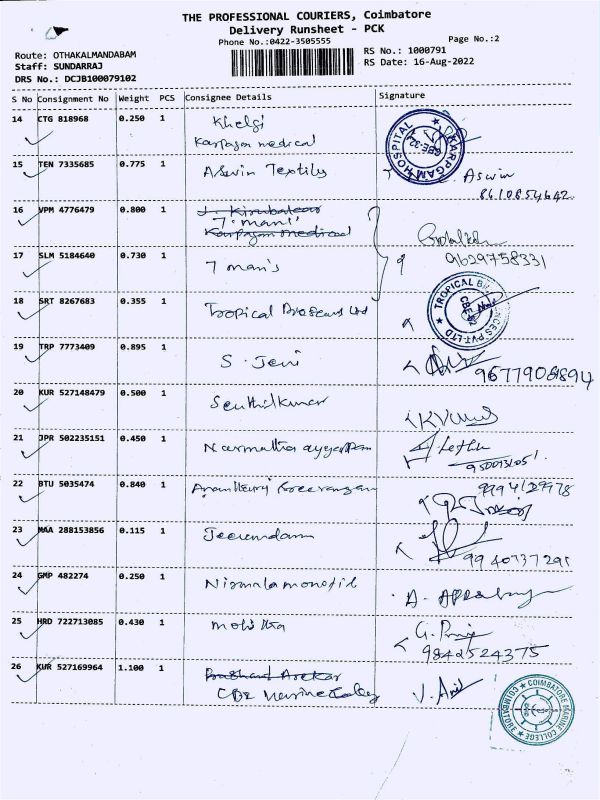 THE PROFESSIONAL COURIERS, Coimbatore
Delivery Runsheet - PCK
Phone No.:0422-3505555
Page No.:2
Route: OTHAKALMANDABAM
RS No.: 1000791
Staff: SUNDARRAJ
RS Date: 16-Aug-2022
DRS No.: DCJB100079102
S No Consignment No Weight PCS Consignee Details Signature
14 CTG 818968 0.250 1 Khelgi
Karpagam medical
KARPGAM HOSPITAL CBE-32
15 TEN 7335685 0.775 1 Aswin Textiles Aswin
8610854642
16 VPM 4776479 0.800 1 J. Kirubakaar
T. mani
Karpagam medical
17 SLM 5184640 0.730 1 T mani's 9629758331
18 SRT 8267683 0.355 1 Tropical Ltd
TROPICAL PVT LTD CBE
19 TRP 7773409 0.895 1 S. Jeni
20 KUR 527148479 0.500 1 Senthilkumar
21 JPR 502235151 0.450 1 Narmatha ayyappan
22 BTU 5035474 0.840 1 9994129978
23 MAA 288153856 0.115 1 9940737291
24 GMP 482274 0.250 1 Nirmala monofil
25 HRD 722713085 0.430 1 mohitha
9842524375
26 KUR 527169964 1.100 1
CBE Marine College
COIMBATORE MARINE COLLEGE COIMBATORE